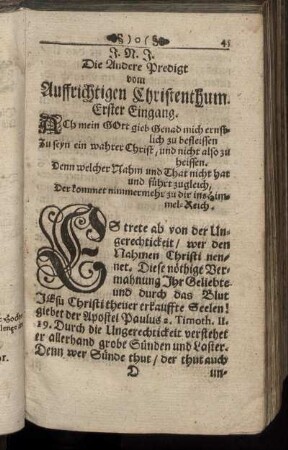 )o( 45
J. N. J.
Die Andere Predigt
vom
Auffrichtigen Christenthum.
Erster Eingang.
ACh mein GOtt gieb Genad mich ernst-
lich zu befleissen
Zu seyn ein wahrer Christ, und nicht also zu
heissen.
Denn welcher Nahm und That nicht hat
und führt zugleich,
Der kommet nimmermehr zu dir ins Him-
mel-Reich.
ES trete ab von der Un-
gerechtickeit / wer den
Nahmen Christi nen-
net. Diese nöthige Ver-
mahnung Ihr Geliebte
und durch das Blut
JEsu Christi theuer erkauffte Seelen!
giebet der Apostel Paulus 2. Timoth. II.
19. Durch die Ungerechtickeit verstehet
er allerhand grobe Sünden und Laster.
Denn wer Sünde thut / der thut auch
D un-